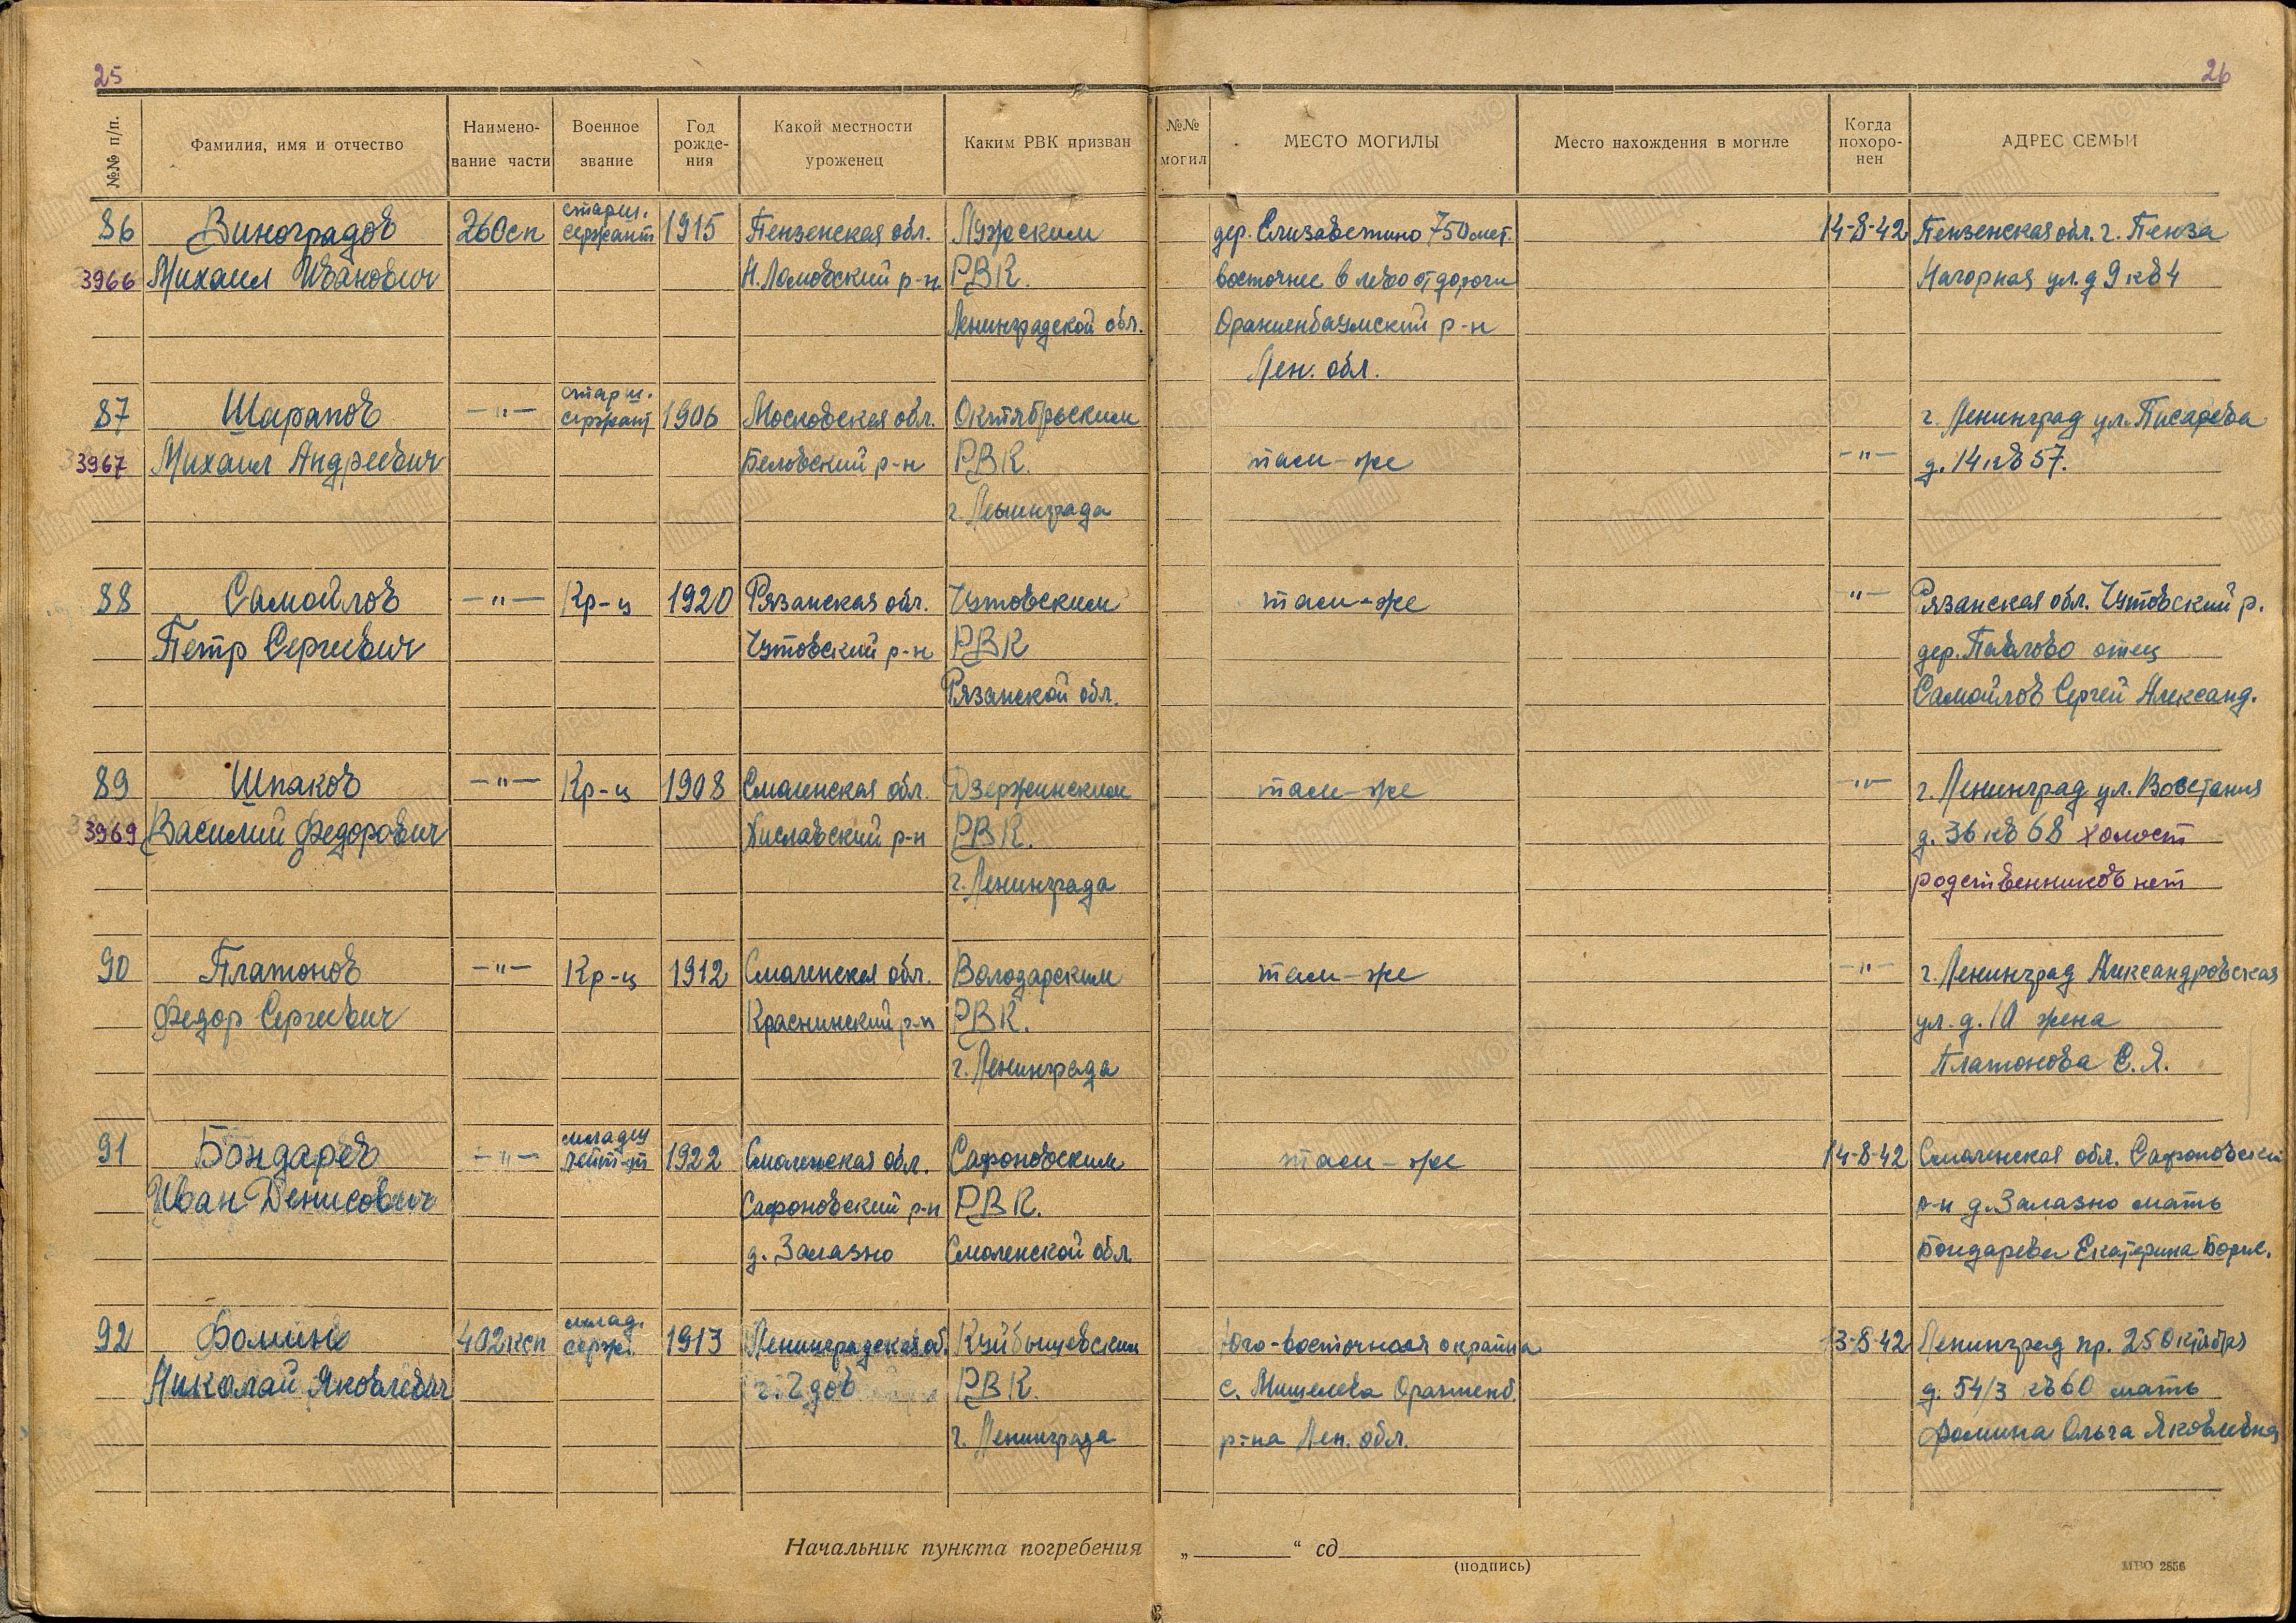 25
26
№№ п/п.
Фамилия, имя и отчество
Наимено-
вание части
Военное
звание
Год
рожде-
ния
Какой местности
уроженец
Каким РВК призван
№№
могил
МЕСТО МОГИЛЫ
Место нахождения в могиле
Когда
похоро-
нен
АДРЕС СЕМЬИ
86 Виноградов 260сп старш. сержант 1915 Пензенская обл. Лужским дер. Елизаветино 750мет. 14-8-42 Пензенская обл. г. Пенза
3966 Михаил Иванович Н. Ломовский р-н РВК. восточнее в лево от дороги Нагорная ул. д 9 кв 4
Ленинградской обл. Ораниенбаумский р-н
Лен. обл.
87 Шарапов —"— старш. сержант 1906 Московская обл. Октябрьским г. Ленинград ул. Писарева
3967 Михаил Андреевич Беловский р-н РВК. там-же -"- д. 14 кв 57.
г. Ленинграда
88 Самойлов —"— Кр-ц 1920 Рязанская обл. Чутовским там-же "- Рязанская обл. Чутовский р.
Петр Сергеевич Чутовский р-н РВК дер. Павлово отец
Рязанской обл. Самойлов Сергей Александ.
89 Шпаков —"— Кр-ц 1908 Смоленская обл. Дзержинским там-же -"- г. Ленинград ул. Восстания
3969 Василий Федорович Хиславский р-н РВК. д. 36 кв 68 холост
г. Ленинграда родственников нет
90 Платонов —"— Кр-ц 1912 Смоленская обл. Володарским там-же -"- г. Ленинград Александровская
Федор Сергеевич Краснинский р-н РВК. ул. д. 10 жена
г. Ленинграда Платонова С. Я.
91 Бондарев —"— младш лейт-нт 1922 Смоленская обл. Сафоновским там-же 14-8-42 Смоленская обл. Сафоновский
Иван Денисович Сафоновский р-н РВК. р-н д. Залазно мать
д. Залазно Смоленской обл. Бондарева Екатерина Борис.
92 Фомин 402ксп млад. серж. 1913 Ленинградская об. Куйбышевским Юго-восточная окраина 13-8-42 Ленинград пр. 25 Октября
Николай Яковлевич г. Гдов РВК. с. Мишелева Ораниенб. д. 54/3 кв 60 мать
г. Ленинграда р-на Лен. обл. Фомина Ольга Яковлевна
Начальник пункта погребения „ “ сд
(подпись)
МВО 2856